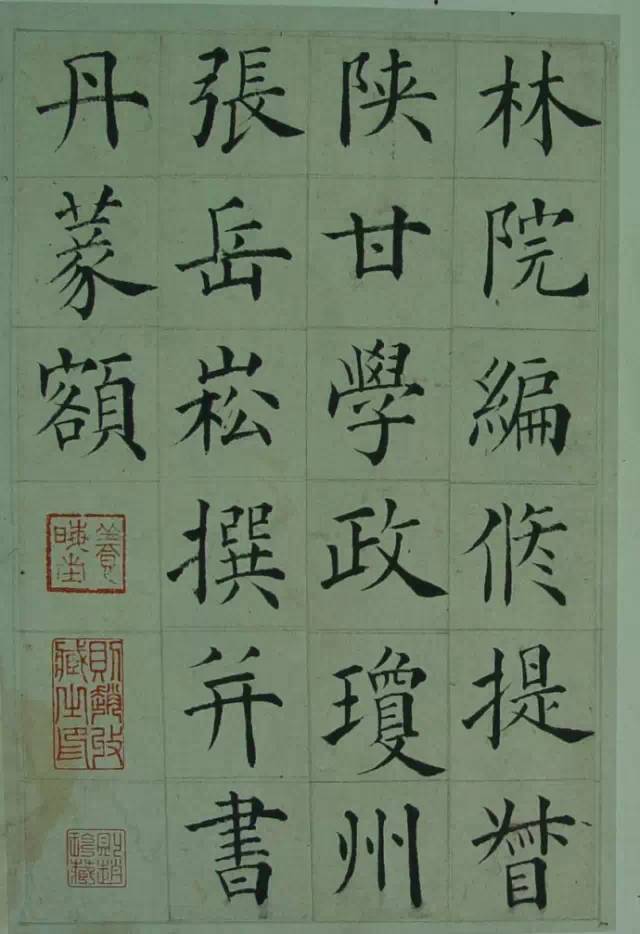 林院編修提督
陝甘學政瓊州
張岳崧撰并書
丹篆額